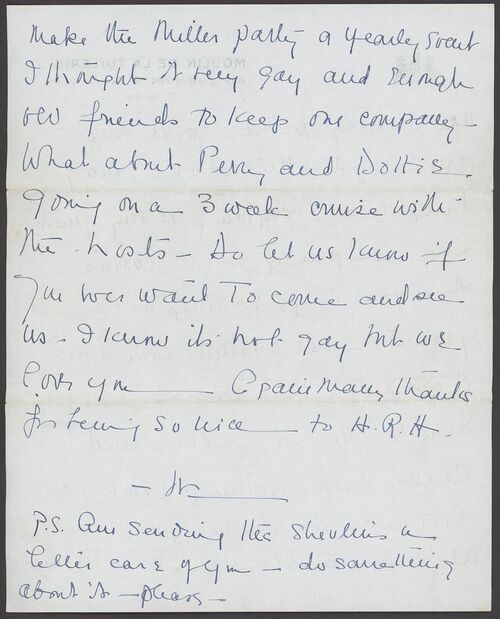 make the Miller party a yearly event
I thought it very gay and enough
old friends to keep one company –
What about Perry and Dottie
going on a 3 week cruise with
the hosts – Do let us know if
you ever want to come and see
us – I know its not gay but we
love you — Again many thanks
for being so nice — to H.R.H.
P.S. Am sending the Shevlins a
letter care of you – do something
about it – please –